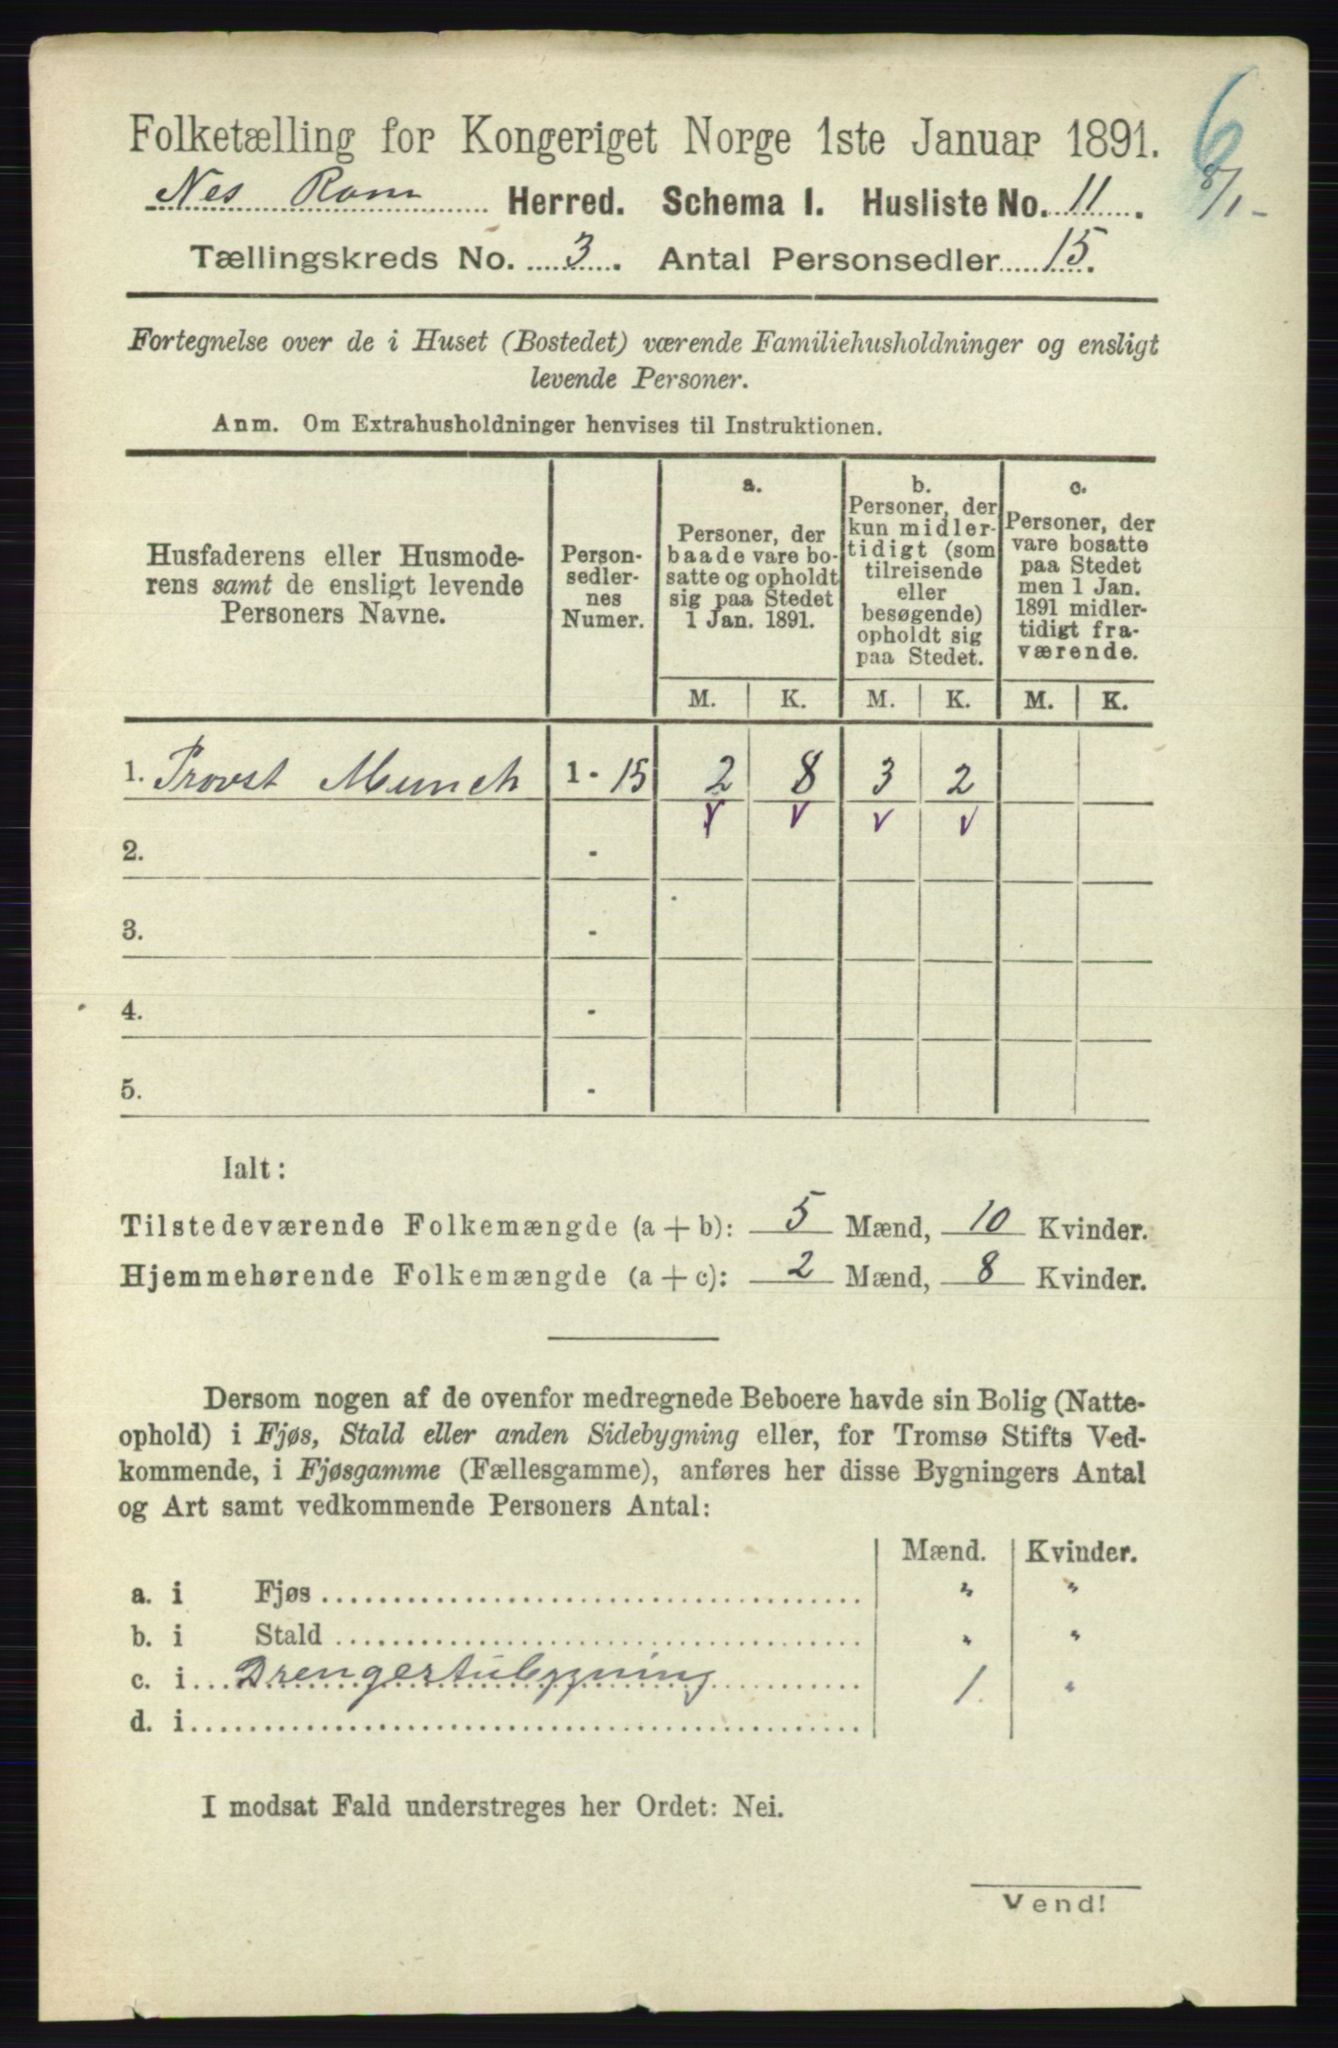 Folketælling for Kongeriget Norge 1ste Januar 1891.
6
Nes Rom Herred. Schema I. Husliste No. 11.
8/1-
Tællingskreds No. 3. Antal Personsedler 15.
Fortegnelse over de i Huset (Bostedet) værende Familiehusholdninger og ensligt
levende Personer.
Anm. Om Extrahusholdninger henvises til Instruktionen.
Husfaderens eller Husmode-
rens samt de ensligt levende
Personers Navne.
Person-
sedler-
nes
Numer.
a.
Personer, der
baade vare bo-
satte og opholdt
sig paa Stedet
1 Jan. 1891.
b.
Personer, der
kun midler-
tidigt (som
tilreisende
eller
besøgende)
opholdt sig
paa Stedet.
c.
Personer, der
vare bosatte
paa Stedet
men 1 Jan.
1891 midler-
tidigt fra-
værende.
M. K. M. K. M. K.
1. Provst Munch 1 - 15 2 8 3 2
2. -
3. -
4. -
5. -
Ialt:
Tilstedeværende Folkemængde (a + b): 5 Mænd, 10 Kvinder.
Hjemmehørende Folkemængde (a + c): 2 Mænd, 8 Kvinder.
Dersom nogen af de ovenfor medregnede Beboere havde sin Bolig (Natte-
ophold) i Fjøs, Stald eller anden Sidebygning eller, for Tromsø Stifts Ved-
kommende, i Fjøsgamme (Fællesgamme), anføres her disse Bygningers Antal
og Art samt vedkommende Personers Antal:
Mænd. Kvinder.
a. i Fjøs " "
b. i Stald " "
c. i Drengestubygning 1. "
d. i
I modsat Fald understreges her Ordet: Nei.
Vend!